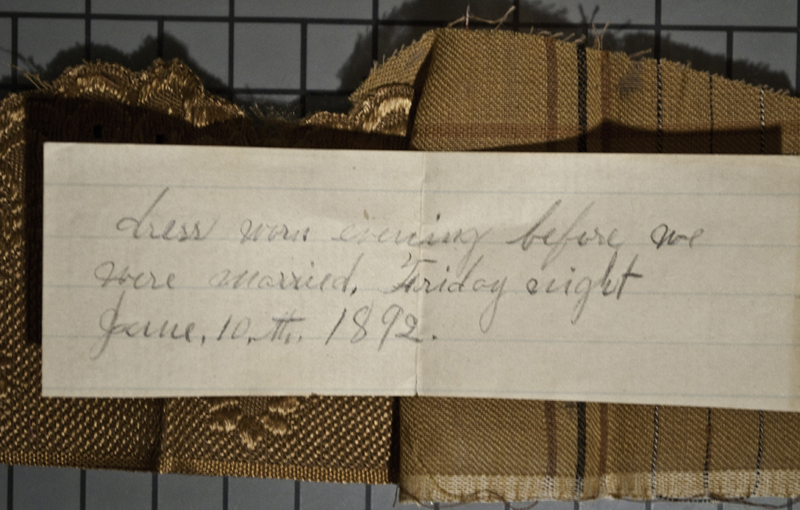 dress worn evening before we
were married, Friday night
June, 10, th. 1892.